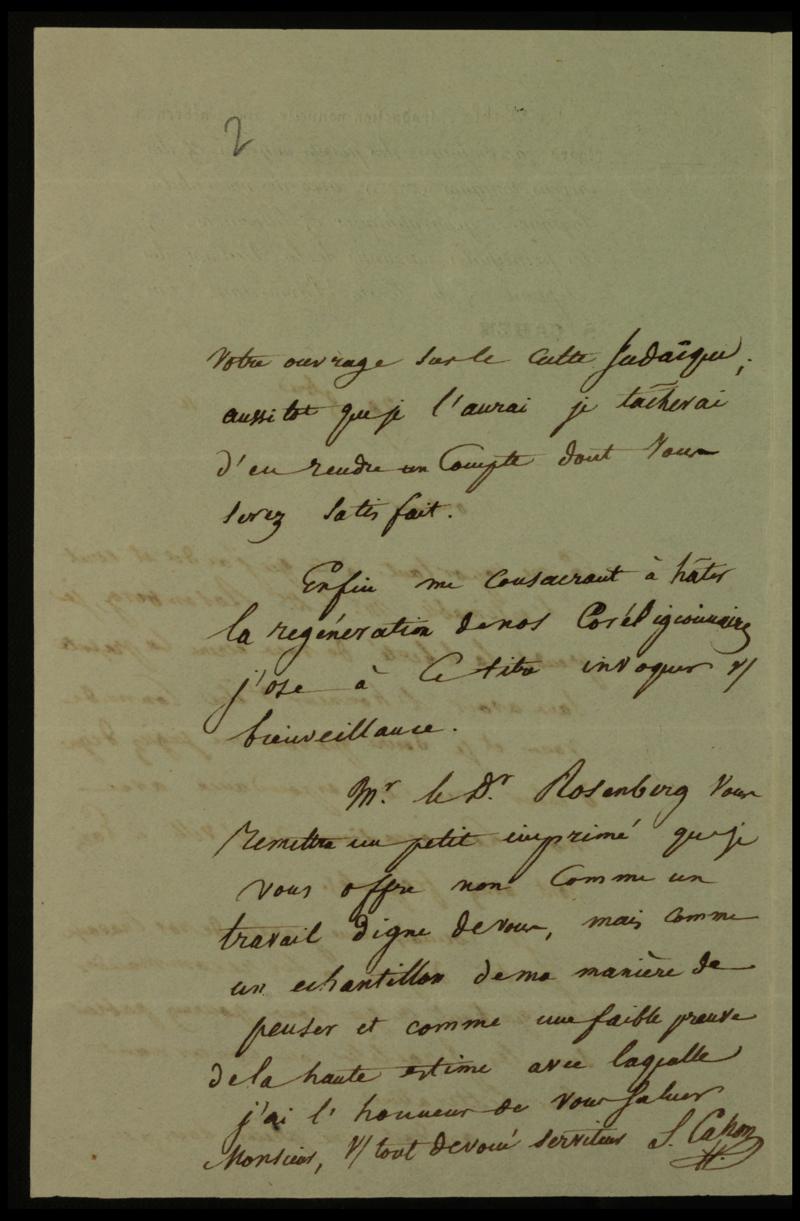 2
votre ouvrage sur le culte Judaïque;
aussitot que je l'aurai je tâcherai
d'en rendre un Compte dont vous
serez satisfait.
Enfin me consacrant à hâter
la regéneration de nos Coréligionnaires
j'ose à ce titre invoquer v/
bienveillance.
Mr. le Dr. Rosenberg vous
remettra un petit imprimé que je
vous offre non comme un
travail digne de vous, mais comme
un echantillon de ma manière de
penser et comme une faible preuve
de la haute estime avec laquelle
j'ai l'honneur de vous saluer
Monsieur, v/ tout devoué serviteur S. Cahen